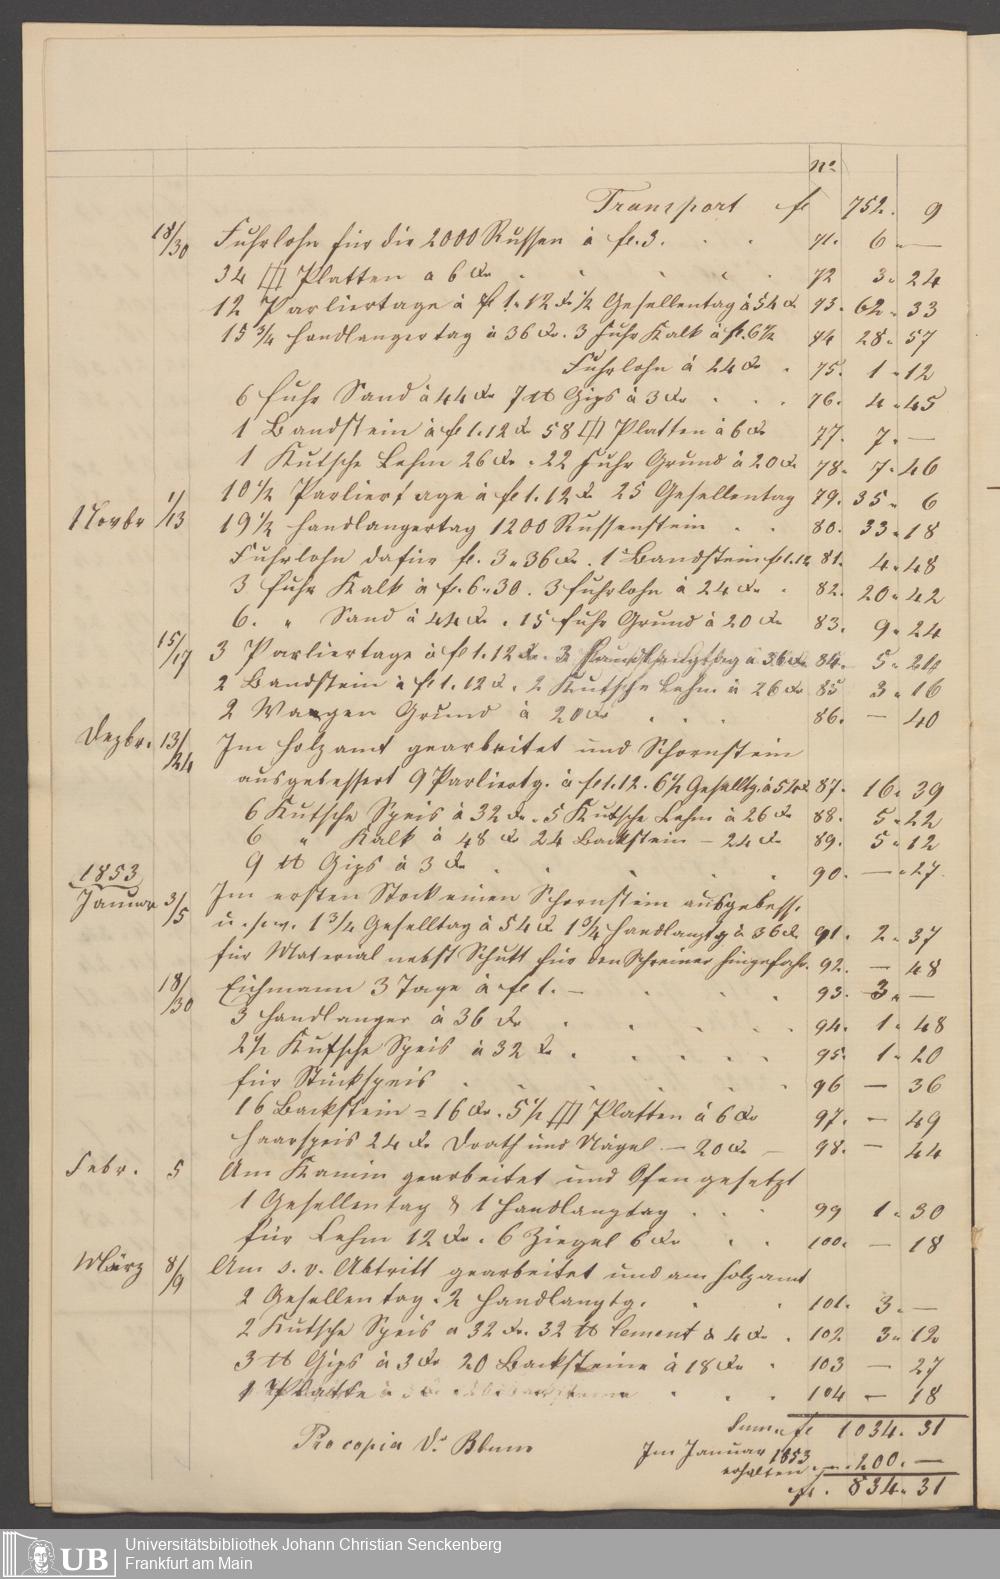 no
Transport fl 752. 9
18/30 Fuhrlohn für die 2000 Russen à fl. 3. 71. 6 „ —
34 Platten a 6 Xr 72 3 „ 24
12 Parliertage à fl 1. 12 Xr ½ Gesellentag à 54 Xr 73. 62 „ 33
15 ¾ Handlangertag à 36 Xr. 3 Fuhr Kalk à fl. 6½ 74 28 „ 57
Fuhrlohn à 24 Xr 75. 1 „ 12
6 Fuhr Sand à 44 Xr 7 ℔ Gips à 3 Xr 76. 4 „ 45
1 Bandstein à fl 1. 12 Xr 58 Platten à 6 Xr 77. 7. —
1 Kutsche Lehm 26 Xr. 22 Fuhr Grund à 20 Xr 78. 7 „ 46
10 ½ Parliertage à fl 1. 12 Xr 25 Gesellentag 79. 35 „ 6
Novbr 1/13 19 ½ Handlangertag 1200 Russenstein 80. 33 „ 18
Fuhrlohn dafür fl. 3 „ 36 Xr. 1 Bandstein fl 1. 12 81. 4 „ 48
3 Fuhr Kalk à fl. 6 „ 30. 3 Fuhrlohn à 24 Xr 82. 20 „ 42
6. „ Sand à 44 Xr. 15 Fuhr Grund à 20 Xr 83. 9 „ 24
15/17 3 Parliertage à fl 1. 12 Xr. 3 Handlangtag à 36 Xr 84. 5 „ 24
2 Bandstein à fl 1. 12 Xr. 2 Kutsche Lehm à 26 Xr 85 3 „ 16
2 Waagen Grund à 20 Xr 86. — 40
Dezbr. 13/24 Im Holzamt gearbeitet und Schornstein
ausgebessert 9 Parliertg. à fl 1. 12. 6½ Geselltg. à 54 Xr 87. 16. 39
6 Kutsche Speis à 32 Xr. 5 Kutsche Lehm à 26 Xr 88. 5 „ 22
6 „ Kalk à 48 Xr 24 Backstein — 24 Xr 89. 5 „ 12
9 ℔ Gips à 3 Xr 90. — „ 27.
1853
Januar 3/5 Im ersten Stock einen Schornstein ausgebess.
u. s. w. 1 ¾ Geselltag à 54 Xr 1 ¾ Handlangtg à 36 Xr 91. 2 „ 37
für Material nebst Schutt für den Schreiner hingefahr. 92. — 48
18/30 Eichmann 3 Tage à fl 1. — 93. 3 „ —
3 Handlanger à 36 Xr 94. 1 „ 48
2½ Kutsche Speis à 32 Xr. 95. 1 „ 20
für Stückspeis 96 — 36
16 Backstein = 16 Xr. 5 ½ Platten à 6 Xr 97. — 49
Haarspeis 24 Xr Drath und Nägel — 20 Xr. 98. — 44
Febr. 5 Am Kamin gearbeitet und Ofen gesetzt
1 Gesellentag & 1 Handlangtag 99 1 „ 30
für Lehm 12 Xr. 6 Ziegel 6 Xr 100. — 18
März 8/9 Am s. v. Abtritt gearbeitet und am Holzamt
2 Gesellentag. 2 Handlangtg. 101. 3. —
2 Kutsche Speis a 32 Xr. 32 ℔ Cement à 4 Xr. 102 3 „ 12
3 ℔ Gips à 3 Xr 20 Backsteine à 18 Xr 103 — 27
1 Platte à 104 — 18
Summa fl 1034. 31
Pro copia Dr Blum
Im Januar 1853
erhalten 200. —
fl. 834. 31
UB Universitätsbibliothek Johann Christian Senckenberg
Frankfurt am Main